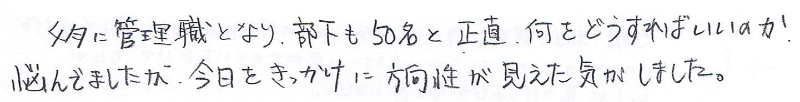 夕夕に管理職となり、部下も50名と正直、何をどうすればいいのか
悩んでましたが、今日をきっかけに方向性が見えた気がしました。